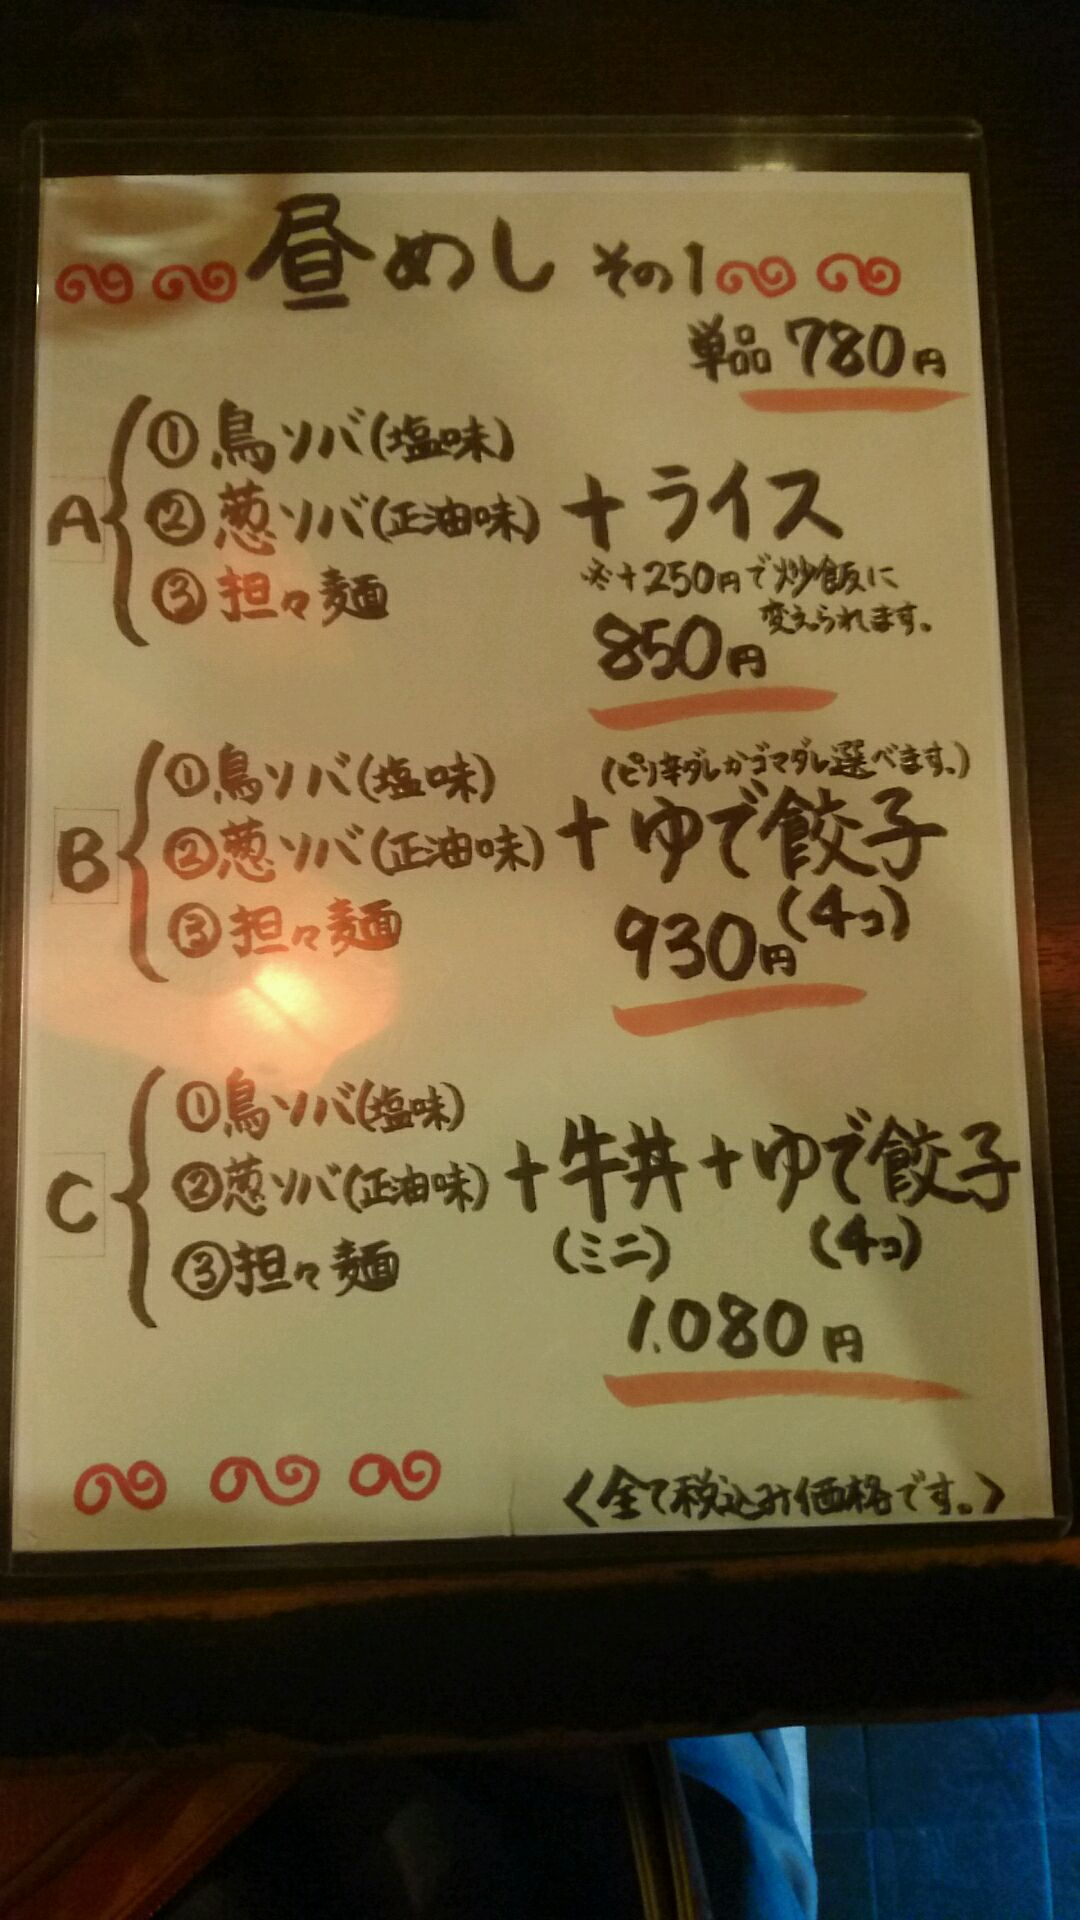 昼めし その1
単品 780円
A
①鳥ソバ(塩味)
②葱ソバ(正油味)
③担々麺
+ライス
※+250円で炒飯に
変えられます。
850円
B
①鳥ソバ(塩味)
②葱ソバ(正油味)
③担々麺
(ピリ辛ダレかゴマダレ選べます。)
+ゆで餃子
(4コ)
930円
C
①鳥ソバ(塩味)
②葱ソバ(正油味)
③担々麺
+牛丼+ゆで餃子
(ミニ) (4コ)
1.080円
〈全て税込み価格です。〉